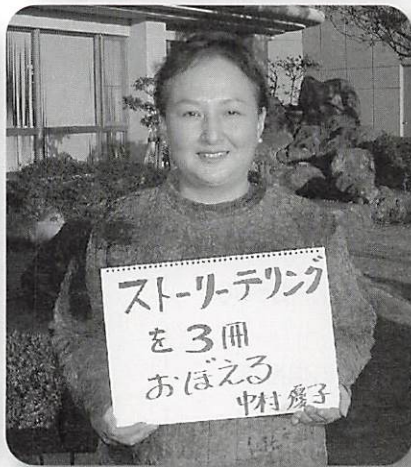 ストーリーテリング
を3冊
おぼえる
中村 子